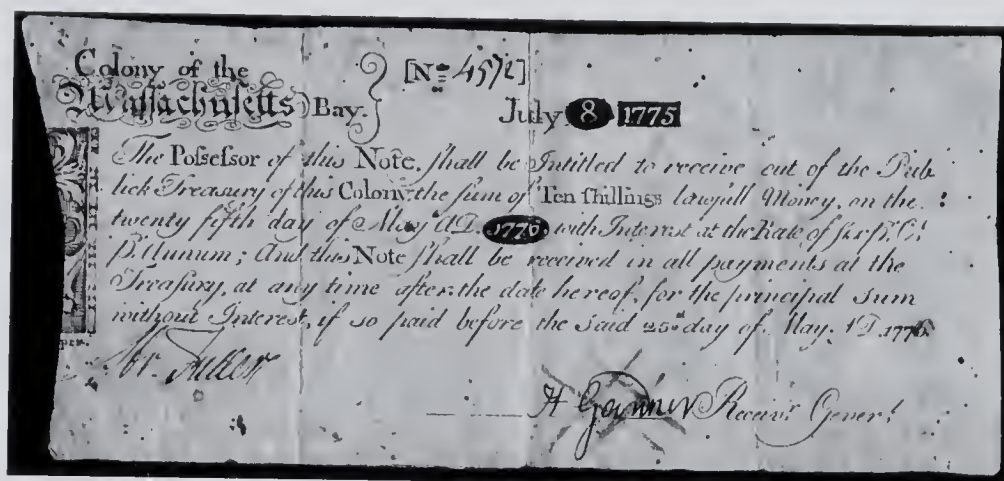 Colony of the
Massachusetts Bay. [No 4572]
July 8 1775
The Possessor of this Note, shall be Intitled to receive out of the Pub
lick Treasury of this Colony, the sum of Ten shillings lawfull Money, on the
twenty fifth day of May AD. 1776 with Interest at the Rate of six Pr. Ct.
Pr. Annum; And this Note shall be received in all payments at the
Treasury, at any time after the date hereof, for the principal sum
without Interest, if so paid before the said 25th day of May. AD. 1776
Abr. Fuller
H Gardner Receivr. General